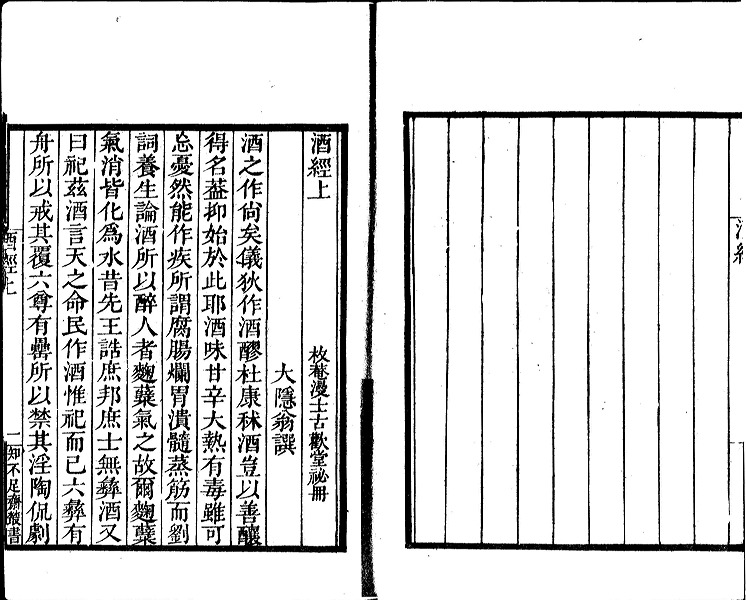 酒經
酒經上
枚菴漫士古歡堂祕冊
大隱翁譔
酒之作尙矣儀狄作酒醪杜康秫酒豈以善釀
得名葢抑始於此耶酒味甘辛大熱有毒雖可
忘憂然能作疾所謂腐腸爛胃潰髓蒸筋而劉
詞養生論酒所以醉人者麴糵氣之故爾麴糵
氣消皆化爲水昔先王誥庶邦庶士無彝酒又
曰祀茲酒言天之命民作酒惟祀而已六彝有
舟所以戒其覆六尊有罍所以禁其淫陶侃劇
酒經上
一
知不足齋叢書